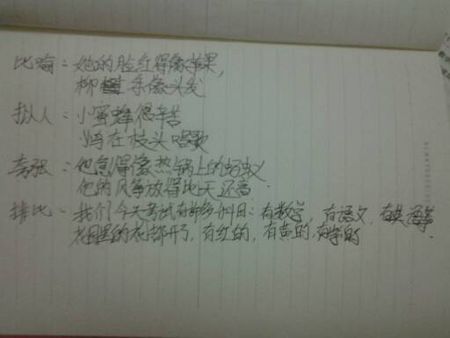 比喻：她的脸红得像苹果，
柳条像头发
拟人：小蜜蜂很辛苦
鸟在枝头唱歌
夸张：他急得像热锅上的蚂蚁
他的风筝放得比天还高.
排比：我们今天考试有许多科目：有数学，有语文，有英语等
花园里的花都开了，有红的，有黄的，有紫的.